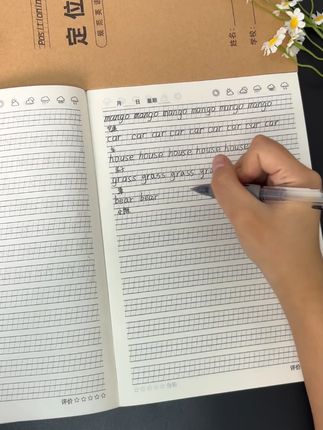 Positioning
定位
最照英语
姓名：
学校：
月 日 星期
mango mango mango mango mango mango
芒果
car car car car car car car car car
车
house house house house house
房子
grass grass grass gra
草
bear bear
评价☆☆☆☆☆
评价☆